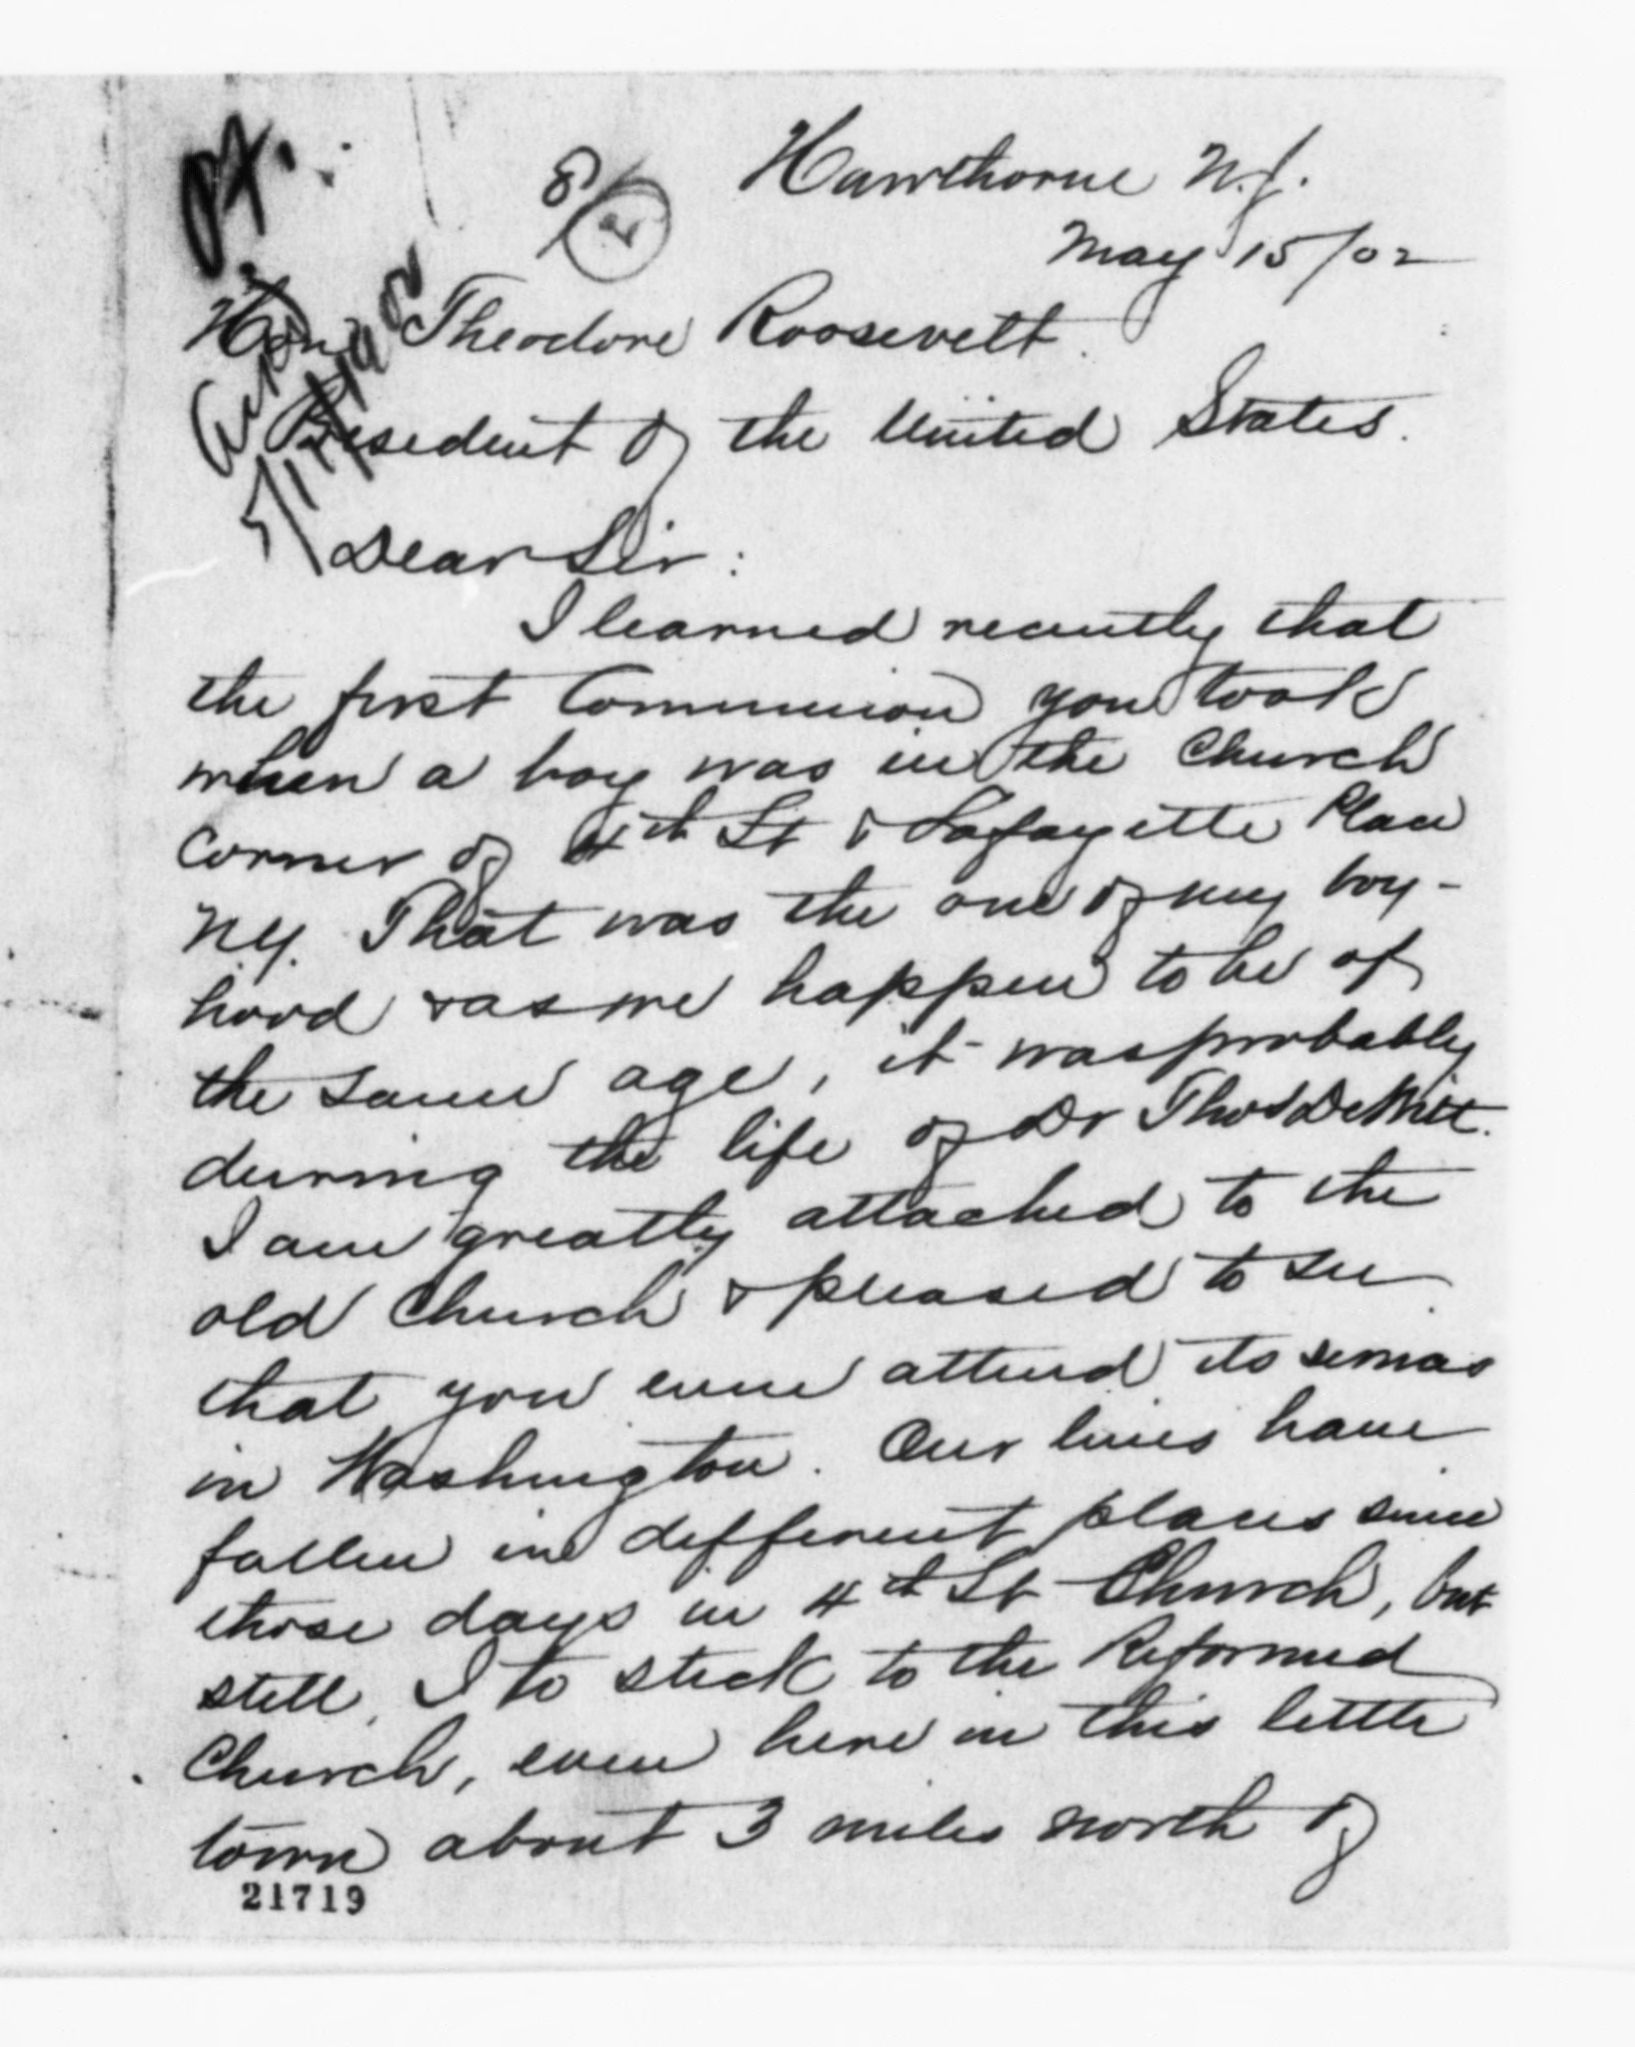 Pf.
8/
Hawthorne N.J.
May 15/02
Hon. Theodore Roosevelt.
Ackd
5/17/1902
President of the United States.
Dear Sir:
I learned recently that
the first Communion you took
when a boy was in the Church
corner of 4th St & Lafayette Place
NY. That was the one of my boy-
hood & as we happen to be of
the same age, it was probably
during the life of Dr Thos DeWitt.
I am greatly attached to the
old Church & pleased to see
that you even attend its services
in Washington. Our lines have
fallen in different places since
those days in 4th St Church, but
still, I to stick to the Reformed
Church, even here in this little
town about 3 miles north of
21719